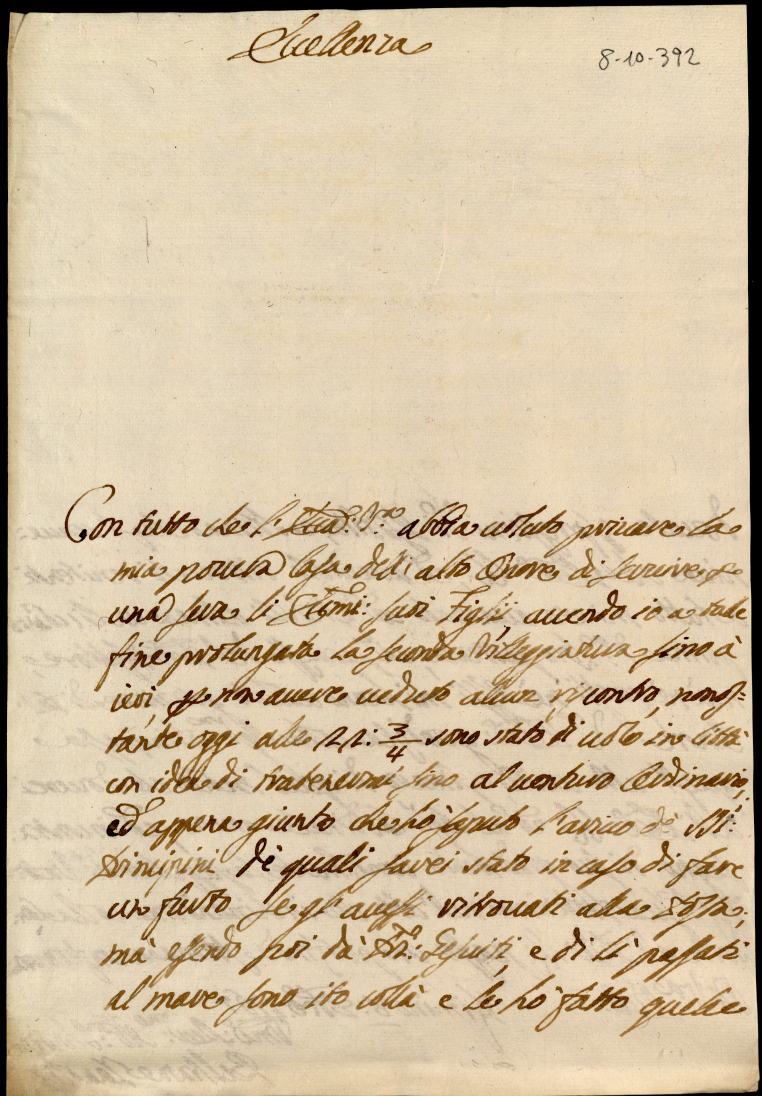 Eccellenza
8-10-392
Con tutto che l'Ecc:ª V:ª abbia uoluto priuare la
mia pouera Casa dell' alto Onore di seruire p
una sera li Ecc:mi: suoi Figlij, auendo io a tale
fine prolungata la seconda Villeggiatura sino à
ieri, p non auere ueduto alcun riscontro, nonos=
tante oggi alle 22: 3/4 sono stato di uolo in Città
con idea di tratenermi sino al uenturo Ordinario,
ed appena giunto che hò saputo l'arriuo de SS:ri
Principini de quali sarei stato in caso di fare
un furto se gl' auessi ritrouati alla Posta;
mà essendo poi dà PP:ri: Gesuiti, e di lì passati
al mare sono ito collà e le hò fatto quelle